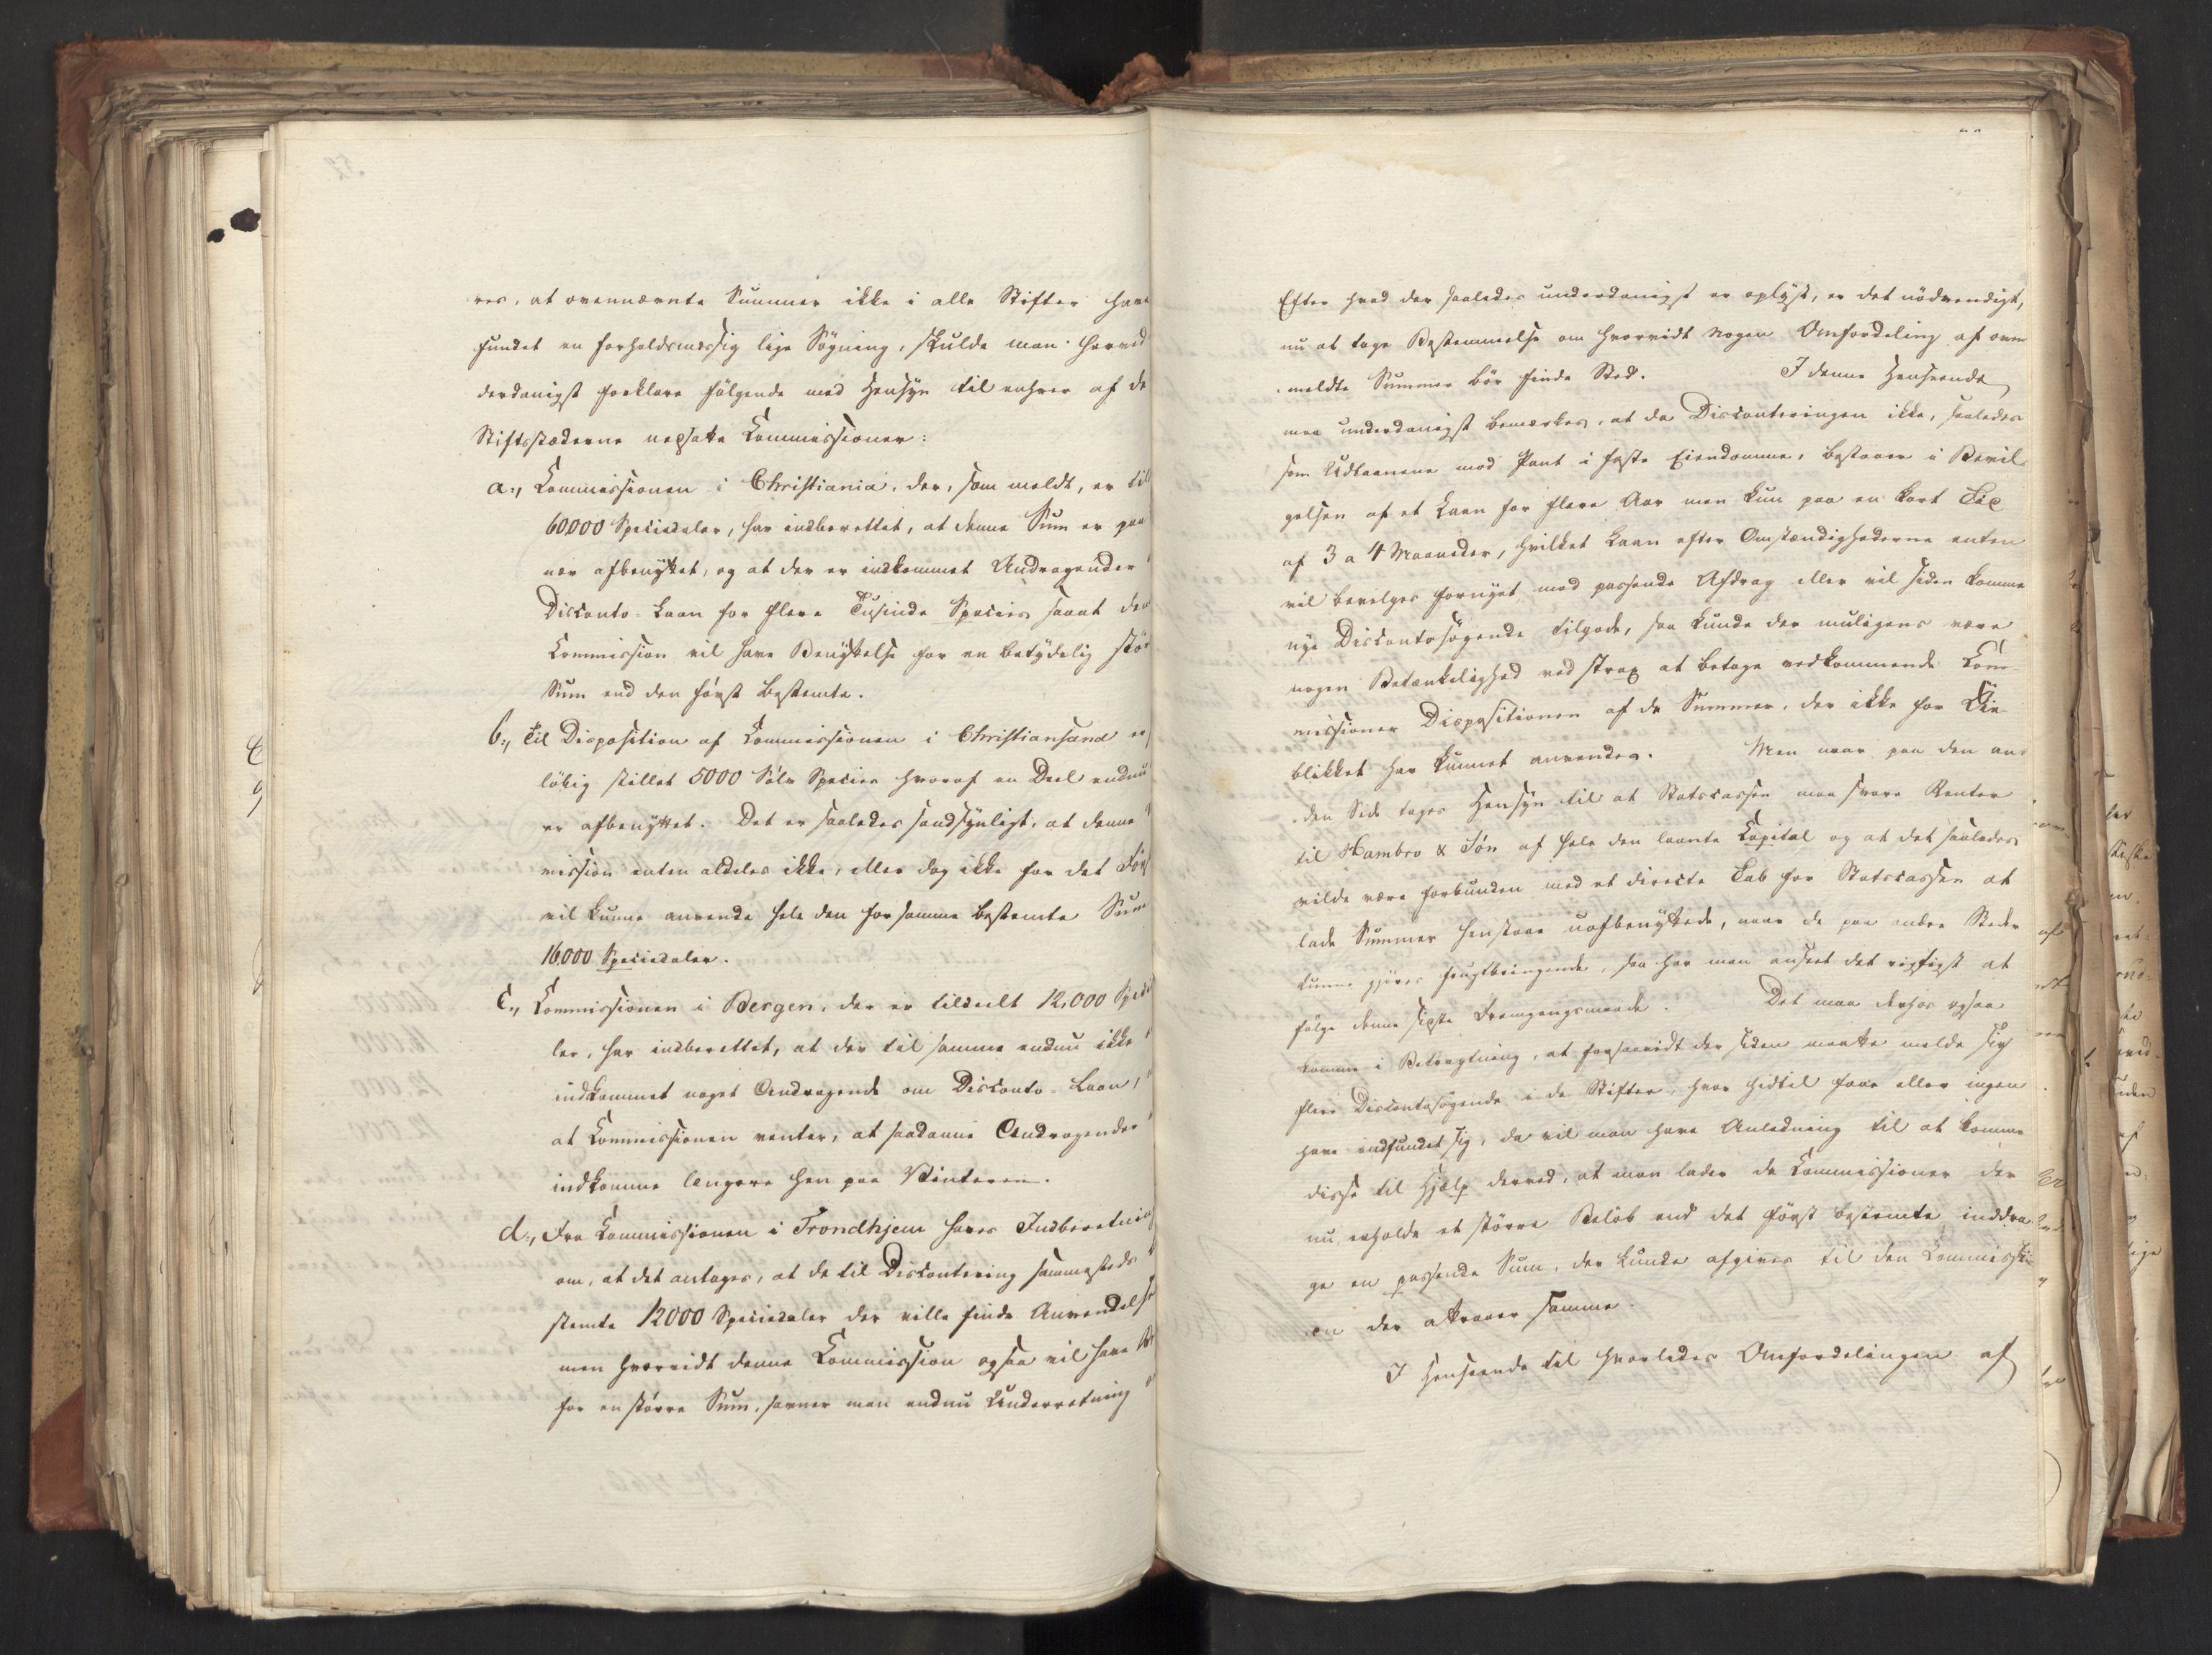 res, at ovennævnte Summer ikke i alle Stifter have
fundet en forholdsmæssig lige Søgning, skulde man herved
derdanigst forklare følgende med Hensyn til enhver af de
Stiftsstæderne nedsatte Commissioner:
a., Commissionen i Christiania, der, som meldt, er till
60000 Speciedaler, har indberettet, at denne Sum er paa
nær afbenyttet, og at der er indkommet Andragender
Disconto-Laan for flere Tusinde Species samt den
Commission vil have Benyttelse for en betydelig stør
Sum end den først bestemte.
b., Til Disposition af Commissionen i Christiansand er
løbig stillet 5000 Sølv Species hvoraf en Deel endnu
er afbenyttet. Det er saaledes sandsynligt, at denne
mission enten aldeles ikke, eller dog ikke for det Før
vil kunne anvende hele den for samme bestemte Sum
16.000 Speciedaler.
c., Commissionen i Bergen, der er tildeelt 12,000 Specie
ler, har indberettet, at der til samme endnu ikke
indkommet noget Andragende om Disconto-Laan,
at Commissionen venter, at saadanne Andragender
indkomme længere hen paa Vinteren.
d., Fra Commissionen i Trondhjem haves Indberetning
om, at det antages, at de til Discontering sammesteds
stemte 12000 Speciedaler der ville finde Anvendelse
men hvorvidt denne Commission ogsaa vil have
for en større Sum, savner man endnu Underretning
Efter hvad der saaledes underdanigst er oplyst, er det nödvendigt,
nu at tage Bestemmelse om hvorvidt nogen Omfordeling af oven
meldte Summer bör finde Sted. I denne Henseende
maa underdanigst bemærkes, at da Disconteringen ikke, saaledes
som Udlaanene mod Pant i faste Eiendomme, bestaaer i Bevil
gelsen af et Laan for flere Aar men kun paa en kort Tid
af 3 a 4 Maaneder, hvilket Laan efter Omstændighederne enten
vil bevilges fornyet mod passende Afdrag eller vil siden komme
nye Discontosøgende tilgode, saa kunde der muligens være
nogen Betænkelighed ved strax at betage vedkommende Com
missioner Dispositionen af de Summer, der ikke for Øie
blikket har kunnet anvendes. Men naar paa den an
den Side tages Hensyn til at Statscassen maa svare Renter
til Hambro & Søn af hele den laante Capital og at det saaledes
vilde være forbunden med et directe Tab for Statscassen at
lade Summer henstaae uafbenyttede, naar de paa andre Steder
kunne gjøres frugtbringende, saa har man anseet det rigtigst at
følge denne sidste Fremgangsmaade. Det maa derhos ogsaa
komme i Betragtning, at forsaavidt der siden maatte melde sig
flere Discontosøgende i de Stifter, hvor hidtil faae eller ingen
have indfundet sig, da vil man have Anledning til at komme
disse til Hjælp derved, at man lader de Commissioner der
nu erholde et større Beløb end det først bestemte, inddra
ge en passende Sum, der kunde afgives til den Commissi
on der attraaer samme.
I Henseende til hvorledes Omfordelingen af